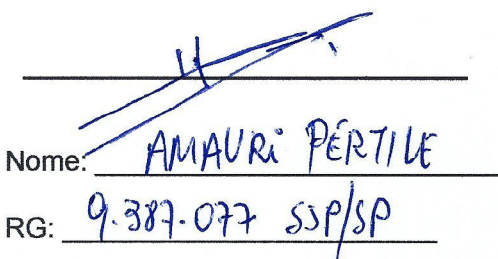 Nome: AMAURI PÉRTILE
RG: 9.387.077 SSP/SP